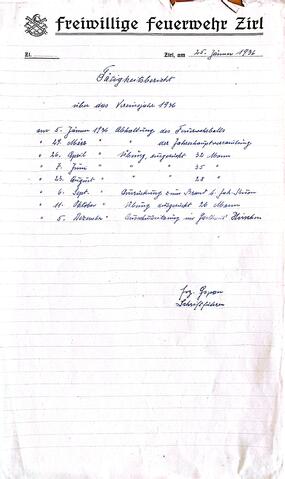 freiwillige Feuerwehr Zirl
Zl. Zirl, am 25. Jänner 1936
Tätigkeitsbericht
über das Vereinsjahr 1936
am 5. Jänner 1936 Abhaltung des Feuerwehrballs
" 29. März " " der Jahreshauptversammlung
" 26. April " Übung ausgerückt 32 Mann
" 7. Juni " " " 35 "
" 23. August " " " 28 "
" 6. Sept. " Ausrückung zum Brand b. Joh.
" 11. Oktober " Übung ausgerückt 26 Mann
" 5. Dezember " im Gasthaus Hirschen
Schriftführer